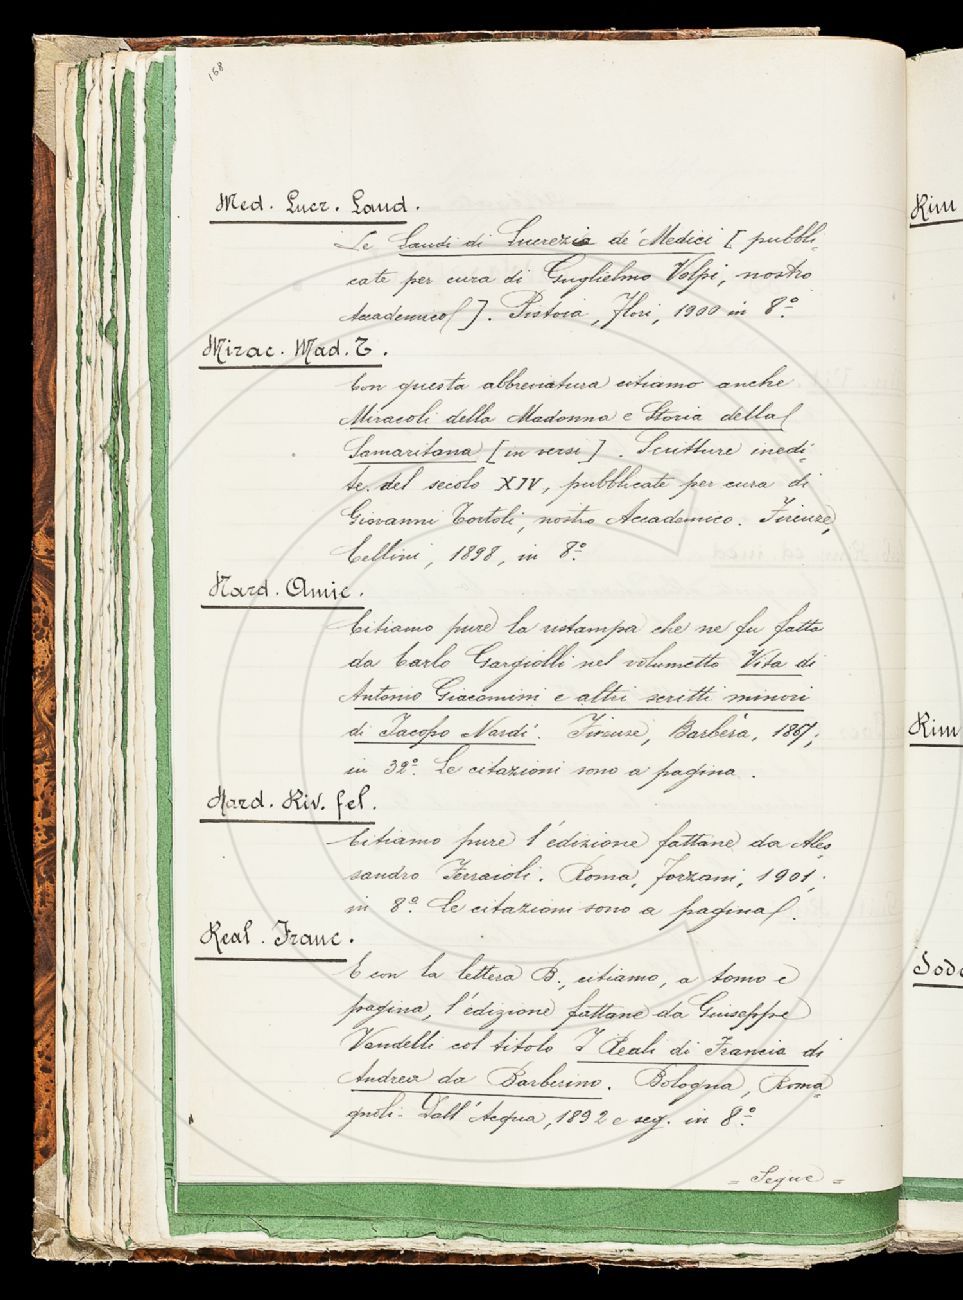 168
Med. Lucr. Laud.
Le Laudi di Lucrezia de' Medici [pubbli-
cate per cura di Guglielmo Volpi, nostro
Accademico]. Pistoia, Flori, 1900 in 8.º
Mirac. Mad. T.
Con questa abbreviatura citiamo anche
Miracoli della Madonna e Storia della
Samaritana [in versi]. Scritture inedi-
te del secolo XIV, pubblicate per cura di
Giovanni Tortoli, nostro Accademico. Firenze,
Cellini, 1898, in 8.º
Nard. Amic.
Citiamo pure la ristampa che ne fu fatta
da Carlo Gargiolli nel volumetto Vita di
Antonio Giacomini e altri scritti minori
di Jacopo Nardi. Firenze, Barbèra, 1867;
in 32.º Le citazioni sono a pagina.
Nard. Riv. fel.
Citiamo pure l'edizione fattane da Ales-
sandro Ferraioli. Roma, Forzani, 1901;
in 8.º Le citazioni sono a pagina.
Real. Franc.
E con la lettera B., citiamo, a tomo e
pagina, l'edizione fattane da Giuseppe
Vandelli col titolo I Reali di Francia di
Andrea da Barberino. Bologna, Roma-
gnoli-Dall'Acqua, 1892 e seg. in 8.º
= Segue =
Rim
Rim